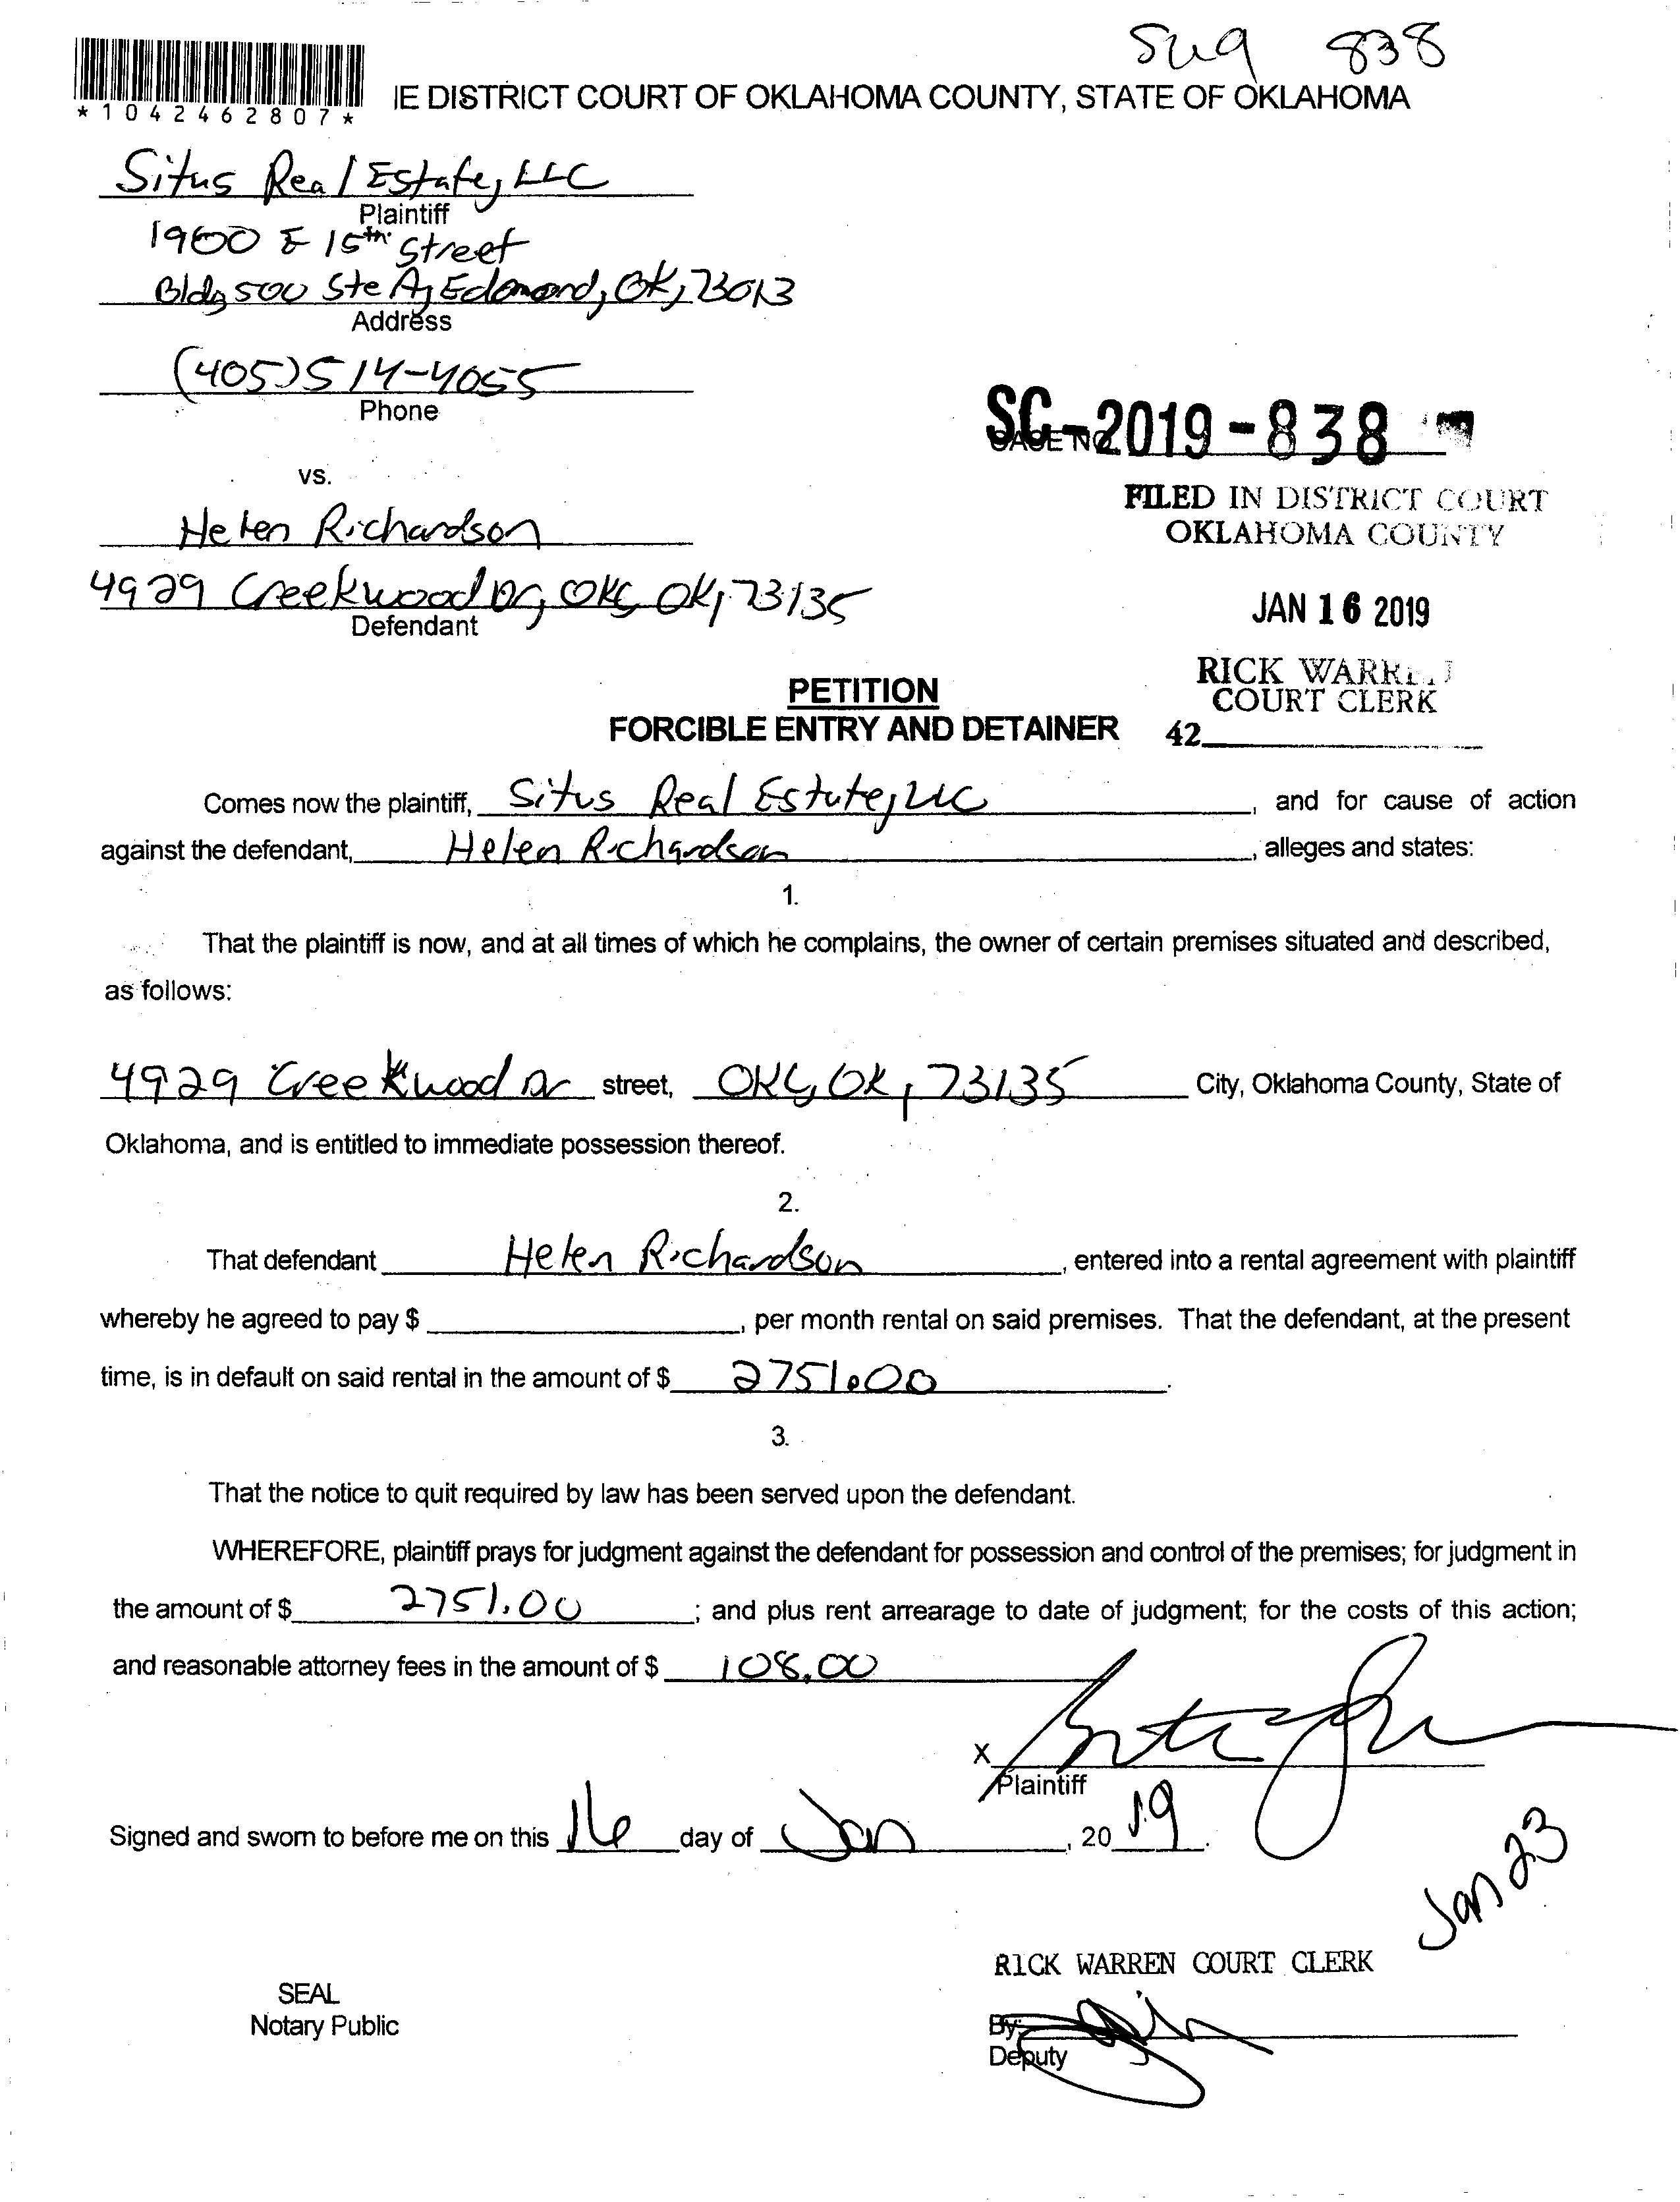 838
*1042462807*
IE DISTRICT COURT OF OKLAHOMA COUNTY, STATE OF OKLAHOMA
Situs Real Estate, LLC
Plaintiff
1900 E 15th Street
Bldg 500 Ste A, Edmond, OK, 73013
Address
(405) 514-4055
Phone
SC-2019-838
CASE NO.
vs.
FILED IN DISTRICT COURT
OKLAHOMA COUNTY
Helen Richardson
4929 Creekwood Dr, OKC, OK, 73135
Defendant
JAN 16 2019
RICK WARREN
COURT CLERK
42
PETITION
FORCIBLE ENTRY AND DETAINER
Comes now the plaintiff, Situs Real Estate, LLC, and for cause of action
against the defendant, Helen Richardson, alleges and states:
1.
That the plaintiff is now, and at all times of which he complains, the owner of certain premises situated and described,
as follows:
4929 Creekwood Dr street, OKC, OK, 73135 City, Oklahoma County, State of
Oklahoma, and is entitled to immediate possession thereof.
2.
That defendant Helen Richardson, entered into a rental agreement with plaintiff
whereby he agreed to pay $ , per month rental on said premises. That the defendant, at the present
time, is in default on said rental in the amount of $ 2751.00.
3.
That the notice to quit required by law has been served upon the defendant.
WHEREFORE, plaintiff prays for judgment against the defendant for possession and control of the premises; for judgment in
the amount of $ 2751.00; and plus rent arrearage to date of judgment; for the costs of this action;
and reasonable attorney fees in the amount of $ 108.00
X
Plaintiff
Signed and sworn to before me on this 16 day of Jan, 2019.
Jan 23
RICK WARREN COURT CLERK
SEAL
Notary Public
By:
Deputy